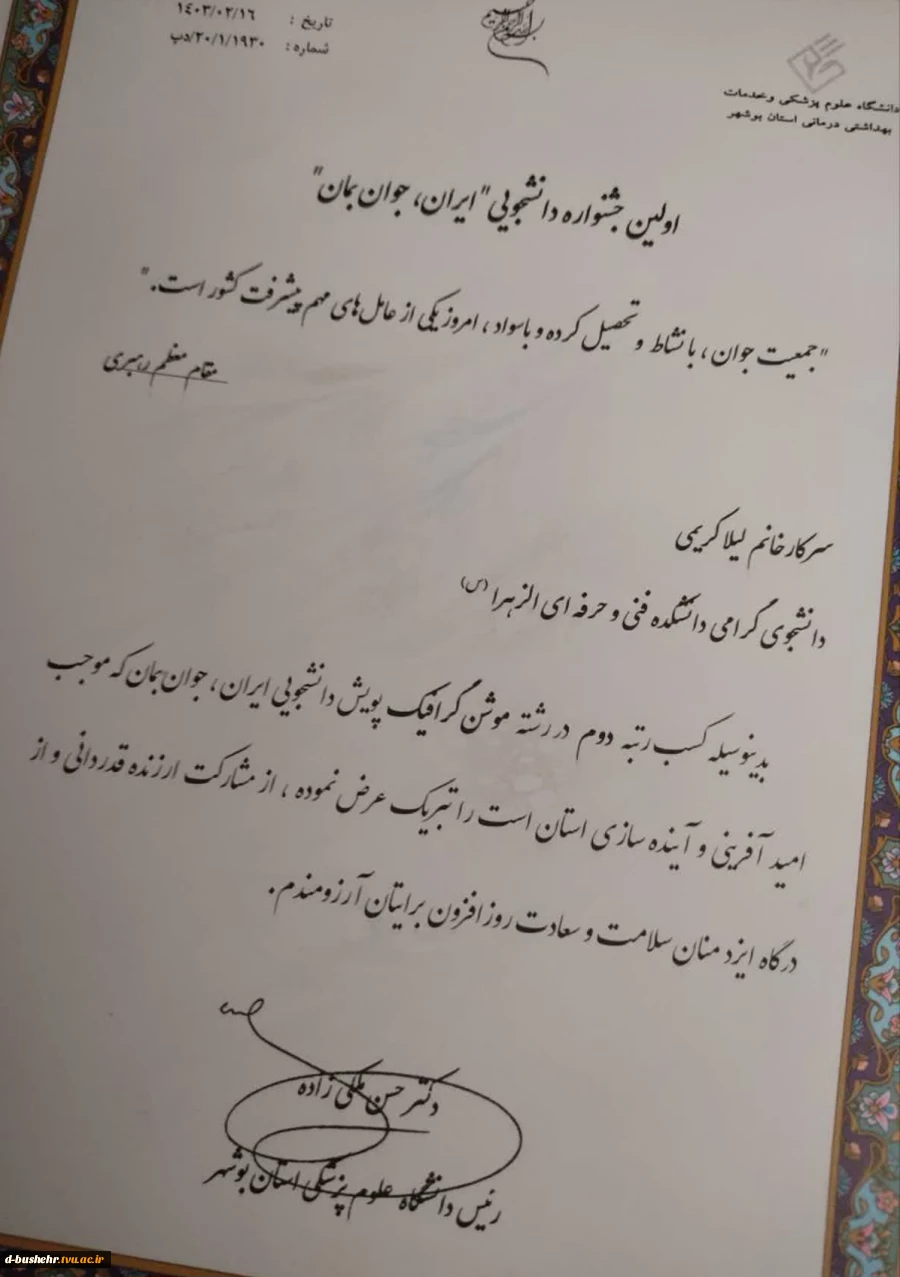 بسم الله الرحمن الرحیم
تاریخ : ۱۴۰۳/۰۲/۱۶
شماره : ۲۰/۱/۱۹۳۰/دپ
دانشگاه علوم پزشکی و خدمات
بهداشتی درمانی استان بوشهر
اولین جشنواره دانشجویی "ایران، جوان بمان"
"جمعیت جوان، با نشاط و تحصیل کرده و باسواد، امروز یکی از عامل‌های مهم پیشرفت کشور است."
مقام معظم رهبری
سرکار خانم لیلا کریمی
دانشجوی گرامی دانشکده فنی و حرفه ای الزهرا (س)
بدینوسیله کسب رتبه دوم در رشته موشن گرافیک پویش دانشجویی ایران، جوان بمان که موجب
امید آفرینی و آینده سازی استان است را تبریک عرض نموده، از مشارکت ارزنده قدردانی و از
درگاه ایزد منان سلامت و سعادت روزافزون برایتان آرزومندم.
دکتر حسن ملکی زاده
رئیس دانشگاه علوم پزشکی استان بوشهر
d-bushehr.tvu.ac.ir